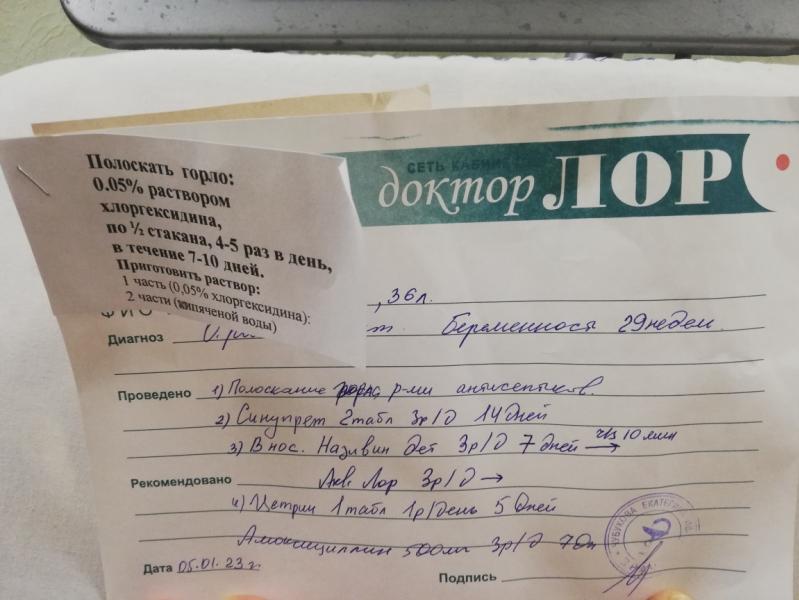 Полоскать горло:
0.05% раствором
хлоргексидина,
по ½ стакана, 4-5 раз в день,
в течение 7-10 дней.
Приготовить раствор:
1 часть (0,05% хлоргексидина):
2 части (кипяченой воды)
СЕТЬ КАБИН
доктор ЛОР
, 36 л.
ФИО
Диагноз Беременност 29недел.
Проведено 1) Полоскание р-ми антисептиков.
2) Синупрет 2табл 3р/D 14 Дней
3) В нос. Називин дет 3р/D 7 дней → ч/з 10 мин
Рекомендовано Акв Лор 3р/D →
4) Цетрин 1табл 1р/день 5 Дней
Амоксициллин 500мг 3р/D 7Дн
Дата 05.01.23г.
Подпись